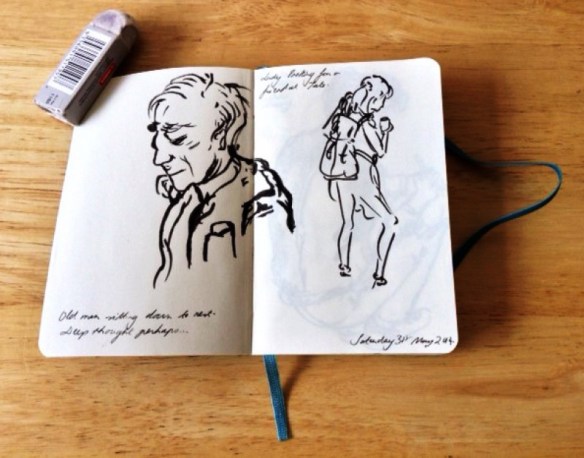 Old man sitting down to rest.
Deep thought perhaps...
Lady looking for a
friend at Tate.
Saturday 31st May 2014